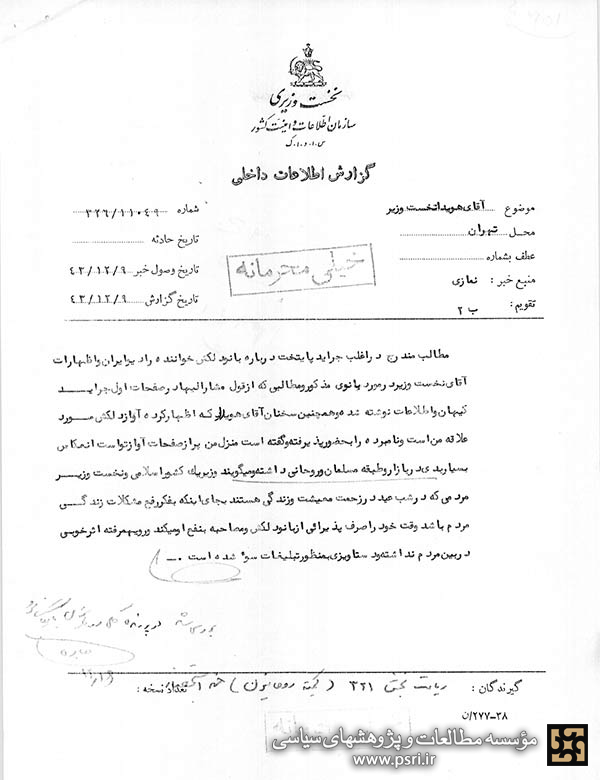 نخست وزیری
سازمان اطلاعات و امنیت کشور
س.ا.و.ا.ک
گزارش اطلاعات داخلی
موضوع آقای هویدا نخست وزیر
شماره ۳۲۶/۱۱۰۴۹
محل تهران
تاریخ حادثه
عطف بشماره
خیلی محرمانه
تاریخ وصول خبر ۴۳/۱۲/۹
منبع خبر : نمازی
تاریخ گزارش ۴۳/۱۲/۹
تقویم : ب ۲
مطالب مندرج در اغلب جراید پایتخت درباره بانو دلکش خواننده رادیو ایران و اظهارات
آقای نخست وزیر در مورد بانوی مذکور و مطالبی که از قول مشارالیها در صفحات اول جراید
کیهان و اطلاعات نوشته شده و همچنین سخنان آقای هویدا که اظهار کرده آواز دلکش مورد
علاقه من است و نامبرده را بحضور پذیرفته و گفته است منزل من پر از صفحات آواز تو است انعکاس
بسیار بدی در بازار و طبقه مسلمان و روحانی داشته و میگویند وزیر یک کشور اسلامی و نخست وزیر
مردمی که در شب عید در زحمت معیشت و زندگی هستند بجای اینکه بفکر رفع مشکلات زندگی
مردم باشد وقت خود را صرف پذیرائی از بانو دلکش و مصاحبه بنفع او میکند و رویهمرفته اثر خوبی
در بین مردم نداشته و دستاویزی بمنظور تبلیغات سوء شده است .
در پرونده
گیرندگان : ۳۲۱
تعداد نسخه :
۳۸-۲۷۷/ن
مؤسسه مطالعات و پژوهشهای سیاسی
www.psri.ir